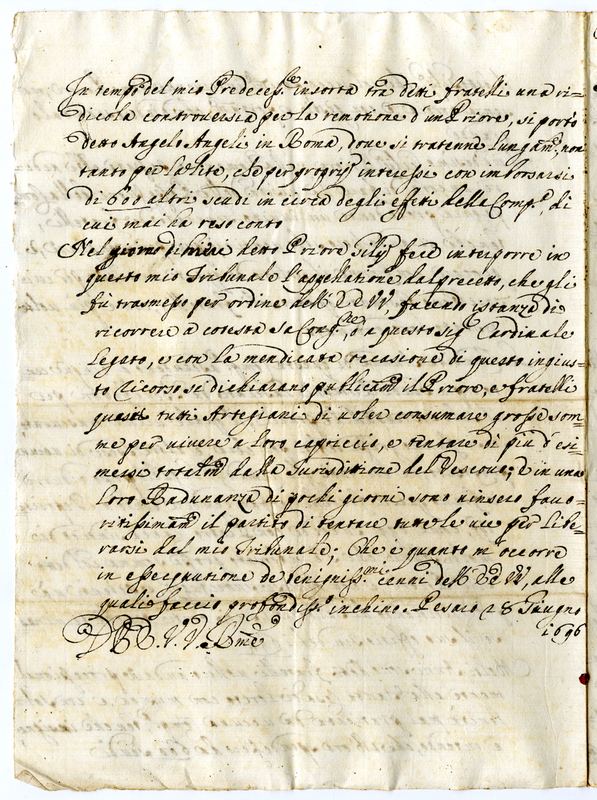 In temp.o del mio Predecess.re insorta tra detti fratelli una ri=
dicola controversia per la remotione d'un Priore, si portò
detto Angelo Angeli in Roma, dove si tratenne lungam.te, non
tanto per la lite, che per proprij interessi con imborsarsi
di 600 altri scudi in circa degli effetti della Comp.a, di
cui mai ha reso conto
Nel giorno di hieri detto Priore fece interporre in
questo mio Tribunale l'appellatione dal precetto, che gli
fù trasmesso per ordine dell' EE VV, facendo istanza di
ricorrere a cotesta Sa Cong.ne, ò a questo sig.r Cardinale
Legato, e con la mendicata occasione di questo ingius=
to ricorso si dichiarano publicam.te il Priore, e fratelli
quasi tutti Artegiani di voler consumare grosse som=
me per vivere a loro capriccio, e tentare di più d'esi=
mersi totalm.te dalla Jurisditione del Vescovo; e in una
loro Radunanza di pochi giorni sono vinsero favo=
ritissimam.te il partito di tentare tutte le vie per libe=
rarsi dal mio Tribunale; Che è quanto m'occorre
in essecutione de benigniss.mi cenni dell' EE VV, alle
quali faccio profondiss.o inchino. Pesaro 28 Giugno
1696
D. EE. V.V. R.me